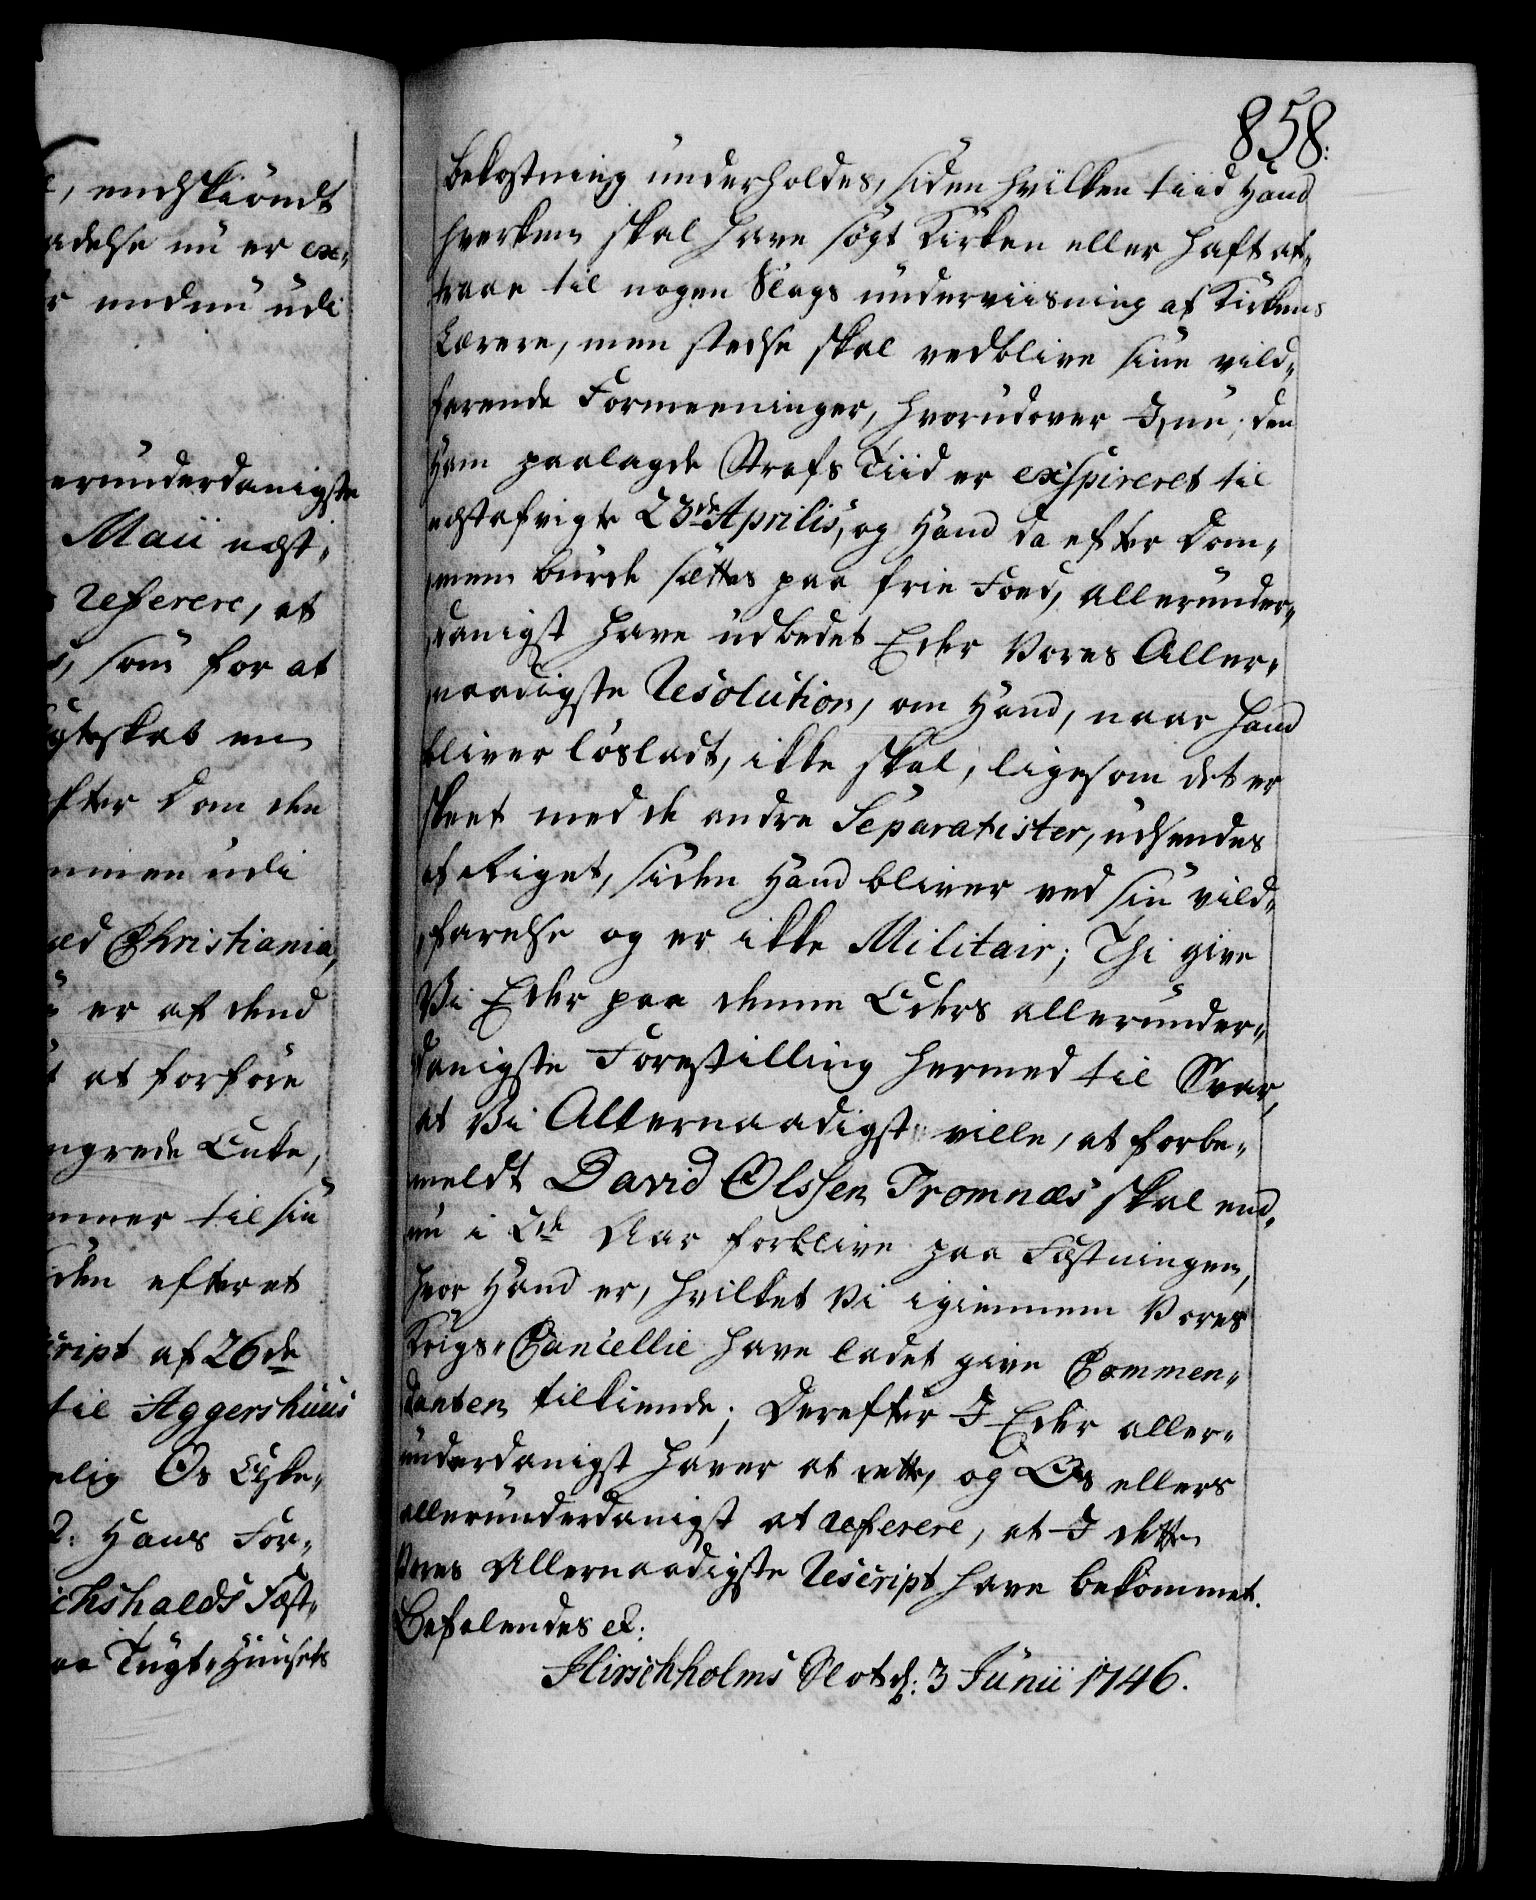 , endskiöndt
adelse nu er ex-
r endnu udi
erunderdanigste
Maii nest-
referere, at
, som for at
gteskab en
efter Dom den
mmen udi
ed Christiania,
er af dend
at forföre
ngrede Enke,
mmer til sin
den efter et
cript af 26de
til Aggershuus
elig Os Elske-
R: Hans For-
ichshalds Fæst-
aa Tugt-Huusets
858.
bekostning underholdes, siden hvilken tiid Hand
hverken skal have søgt Kirken eller haft at-
traae til nogen Slags underviisning af Kirkens
Lærere, men stedse skal vedblive sine vild-
farende Formeeninger, hvorudover I, nu, den
Ham paalagde Strafs Tiid er exspireret til
nestafvigte 23de Aprilis, og Hand da efter Dom-
men burde sættes paa frie Foed, allerunder-
danigst have udbedet Eder Vores Aller-
naadigste Resolution, om Hand, naar Hand
bliver lösladt, ikke skal, ligesom det er
skeet med de andre Separatister, udsendes
af Riget, siden Hand bliver ved sin vild-
farelse og er ikke Militair; Thi give
Vi Eder paa denne Eders allerunder-
danigste Forestilling hermed til Svar,
at Vi Allernaadigst ville, at forbe-
meldt David Olssen Tromnæs skal end-
nu i Et Aar forblive paa Fæstningen,
hvor Hand er, hvilket Vi igiennem Vores
Krigs-Cancellie have ladet give Commen-
danten tilkiende; Derefter I Eder aller-
underdanigst haver at rette, og Os ellers
allerunderdanigst at referere, at I dette
Vores Allernaadigste Rescript have bekommet.
Befalendes etc:
Hirschholms Slot d: 3 Junii 1746.